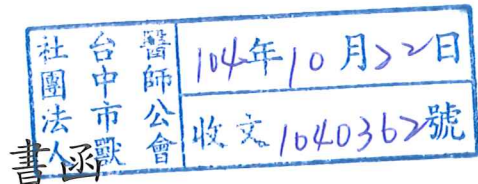 社團法人
台中市獸
醫師公會
104年10月22日
收文1040362號
書函